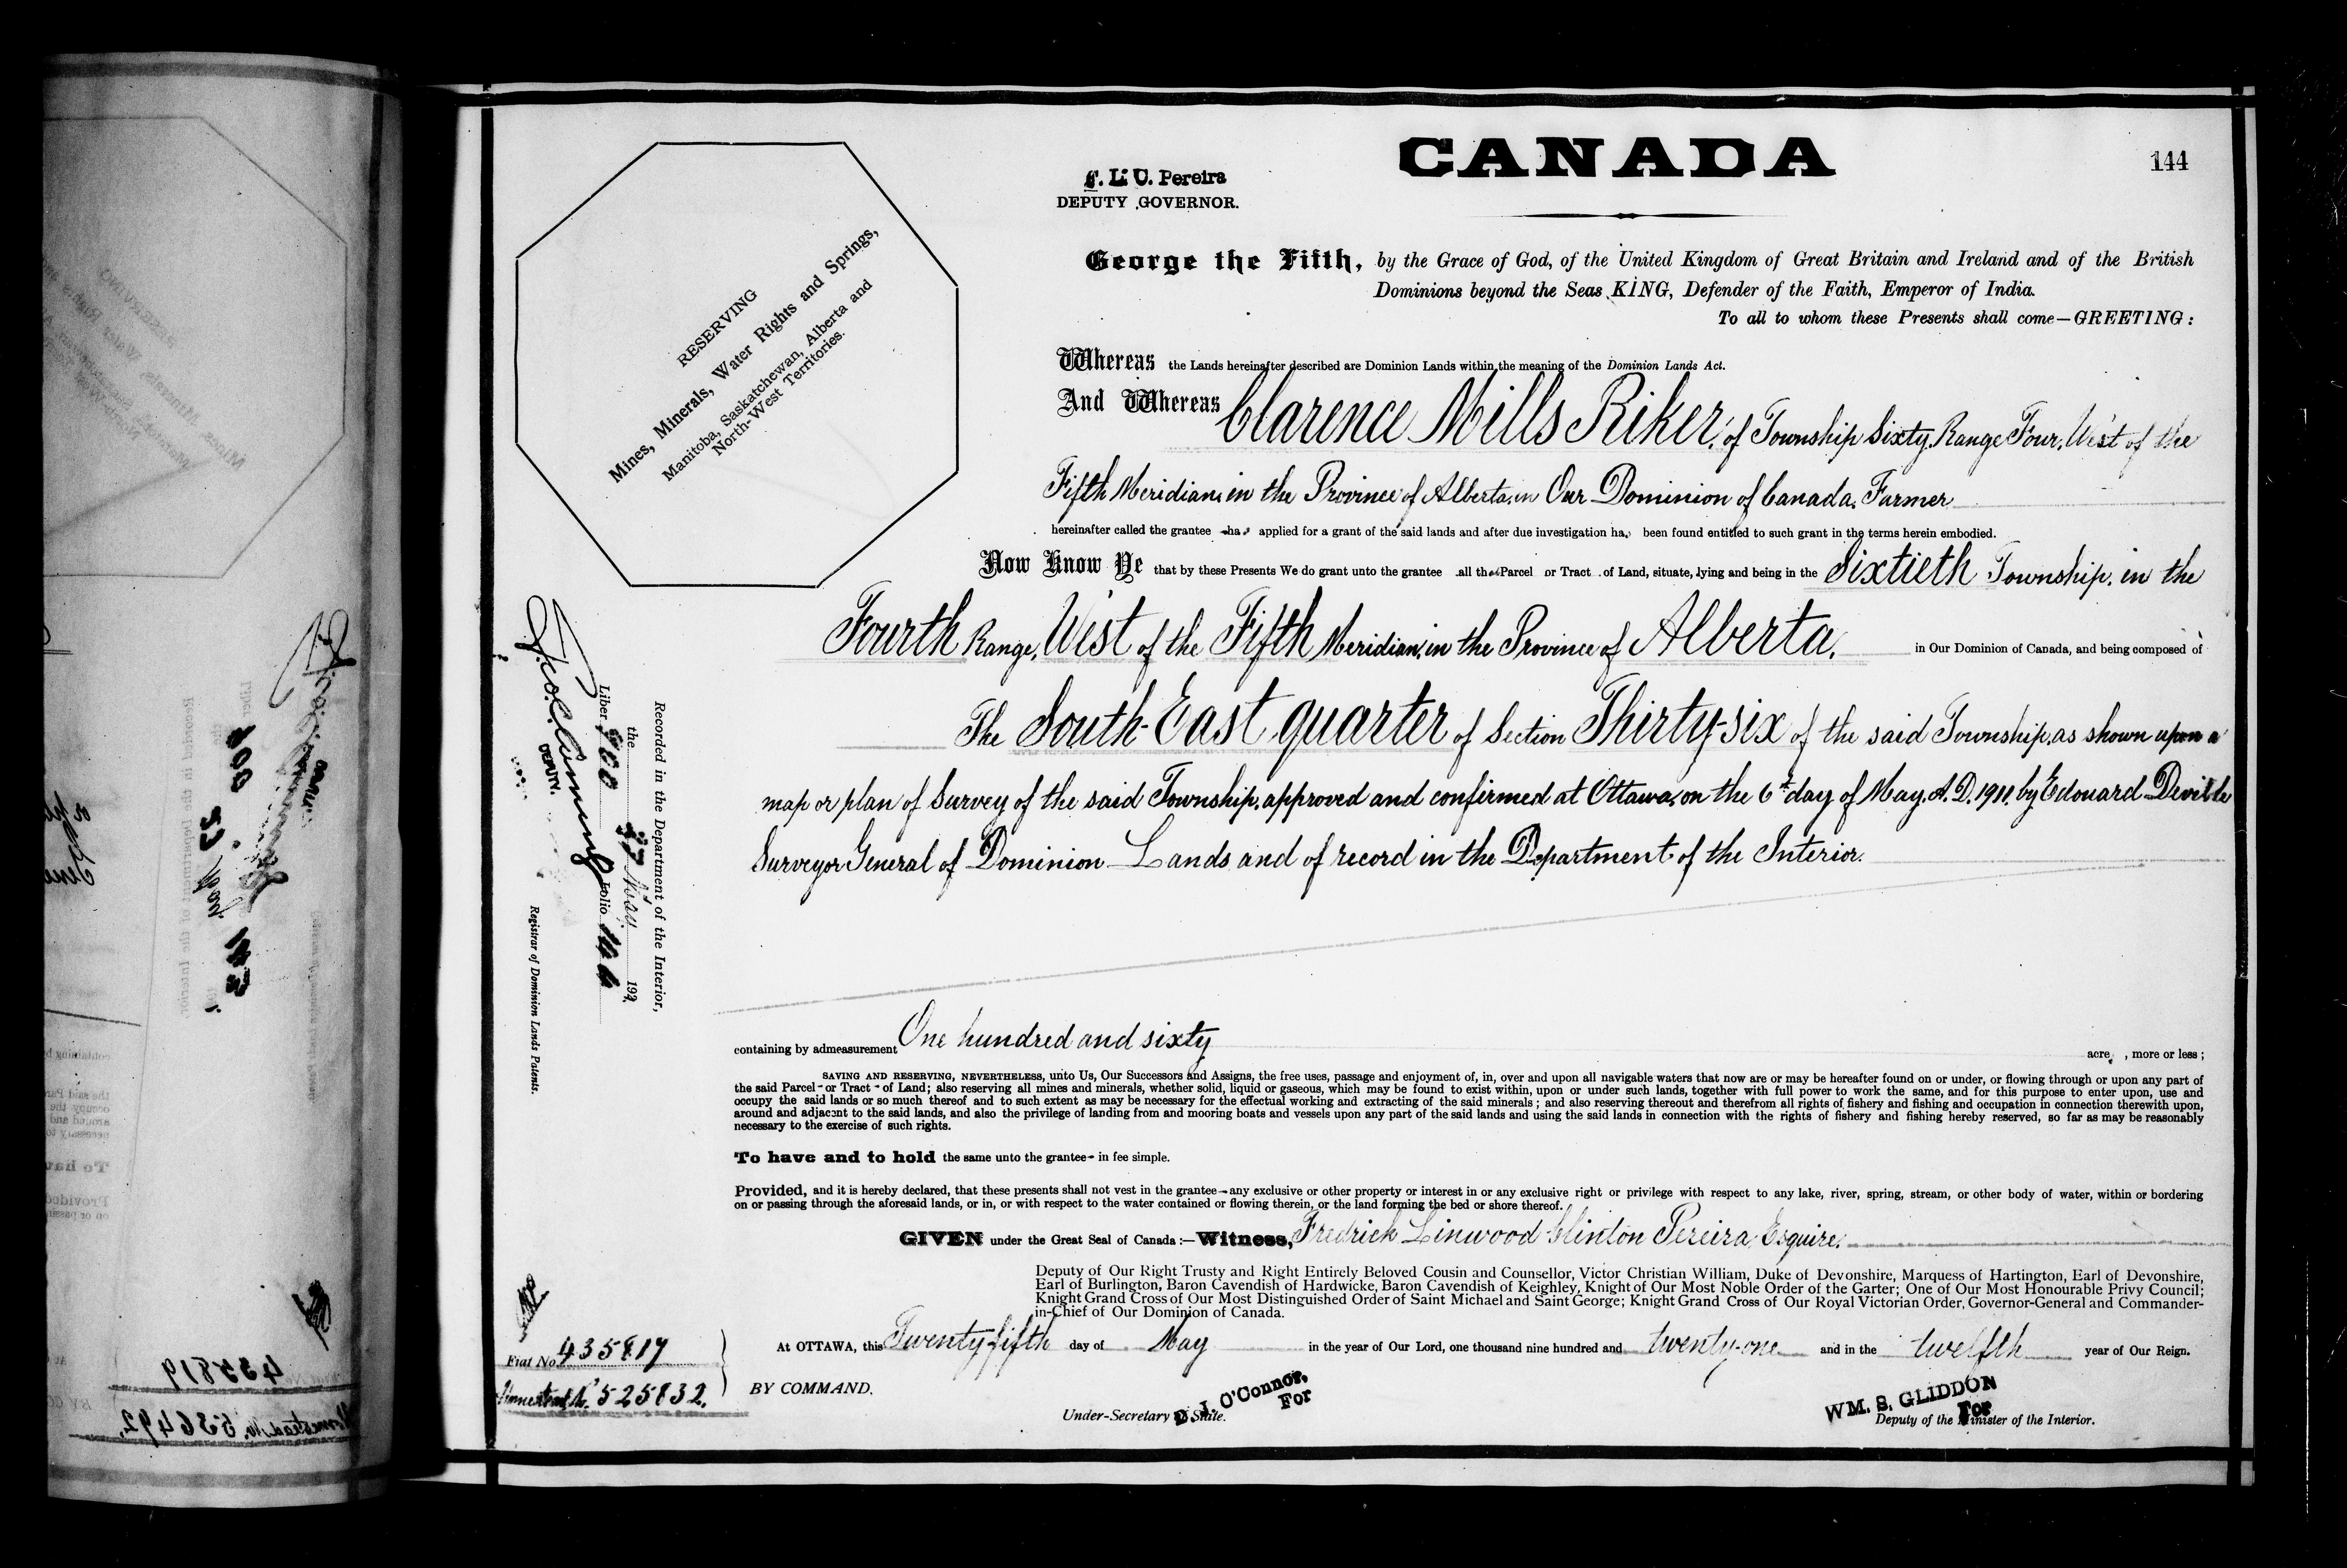 CANADA
144
F. L. C. Pereira
DEPUTY GOVERNOR.
George the Fifth, by the Grace of God, of the United Kingdom of Great Britain and Ireland and of the British
Dominions beyond the Seas KING, Defender of the Faith, Emperor of India.
To all to whom these Presents shall come—GREETING:
RESERVING
Mines, Minerals, Water Rights and Springs,
Manitoba, Saskatchewan, Alberta and
North-West Territories.
Whereas the Lands hereinafter described are Dominion Lands within the meaning of the Dominion Lands Act.
And Whereas Clarence Mills Riker, of Township Sixty, Range Four, West of the
Fifth Meridian, in the Province of Alberta, in Our Dominion of Canada, Farmer
hereinafter called the grantee has applied for a grant of the said lands and after due investigation has been found entitled to such grant in the terms herein embodied.
Now Know Ye that by these Presents We do grant unto the grantee all that Parcel or Tract of Land, situate, lying and being in the Sixtieth Township, in the
Fourth Range, West of the Fifth Meridian, in the Province of Alberta, in Our Dominion of Canada, and being composed of
The South-East quarter of Section Thirty-six of the said Township, as shown upon a
map or plan of Survey of the said Township, approved and confirmed at Ottawa, on the 6th day of May, A.D. 1911, by Edouard Deville
Surveyor General of Dominion Lands and of record in the Department of the Interior.
Recorded in the Department of the Interior,
the 27 May 192
Liber 800 Folio 144
DEPUTY.
Registrar of Dominion Lands Patents.
containing by admeasurement One hundred and sixty acre, more or less;
SAVING AND RESERVING, NEVERTHELESS, unto Us, Our Successors and Assigns, the free uses, passage and enjoyment of, in, over and upon all navigable waters that now are or may be hereafter found on or under, or flowing through or upon any part of
the said Parcel or Tract of Land; also reserving all mines and minerals, whether solid, liquid or gaseous, which may be found to exist within, upon or under such lands, together with full power to work the same, and for this purpose to enter upon, use and
occupy the said lands or so much thereof and to such extent as may be necessary for the effectual working and extracting of the said minerals; and also reserving thereout and therefrom all rights of fishery and fishing and occupation in connection therewith upon,
around and adjacent to the said lands, and also the privilege of landing from and mooring boats and vessels upon any part of the said lands and using the said lands in connection with the rights of fishery and fishing hereby reserved, so far as may be reasonably
necessary to the exercise of such rights.
To have and to hold the same unto the grantee in fee simple.
Provided, and it is hereby declared, that these presents shall not vest in the grantee any exclusive or other property or interest in or any exclusive right or privilege with respect to any lake, river, spring, stream, or other body of water, within or bordering
on or passing through the aforesaid lands, or in, or with respect to the water contained or flowing therein, or the land forming the bed or shore thereof.
GIVEN under the Great Seal of Canada:—Witness, Fredrick Linwood Clinton Pereira, Esquire.
Deputy of Our Right Trusty and Right Entirely Beloved Cousin and Counsellor, Victor Christian William, Duke of Devonshire, Marquess of Hartington, Earl of Devonshire,
Earl of Burlington, Baron Cavendish of Hardwicke, Baron Cavendish of Keighley, Knight of Our Most Noble Order of the Garter; One of Our Most Honourable Privy Council;
Knight Grand Cross of Our Most Distinguished Order of Saint Michael and Saint George; Knight Grand Cross of Our Royal Victorian Order, Governor-General and Commander-
in-Chief of Our Dominion of Canada.
At OTTAWA, this Twenty-fifth day of May in the year of Our Lord, one thousand nine hundred and twenty-one and in the twelfth year of Our Reign.
Fiat No. 435817
Homestead No. 525832.
BY COMMAND.
D. J. O'Connor,
For
Under-Secretary of State.
WM. S. GLIDDON
For
Deputy of the Minister of the Interior.